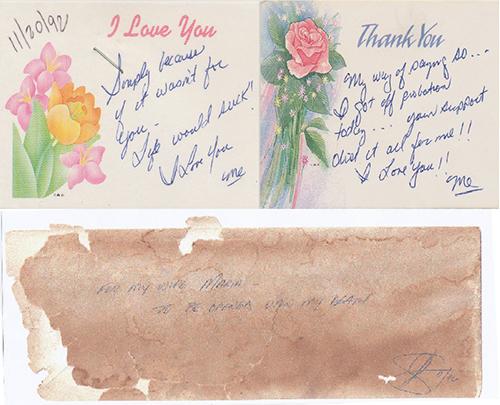 11/20/92
I Love You
Simply because
if it wasn't for
you -
Life would suck!
I Love You
me
Thank You
My way of saying so...
I got off probation
today... your support
did it all for me!!
I Love You!!
me
FOR MY WIFE MARIA -
TO BE OPENED UPON MY DEATH